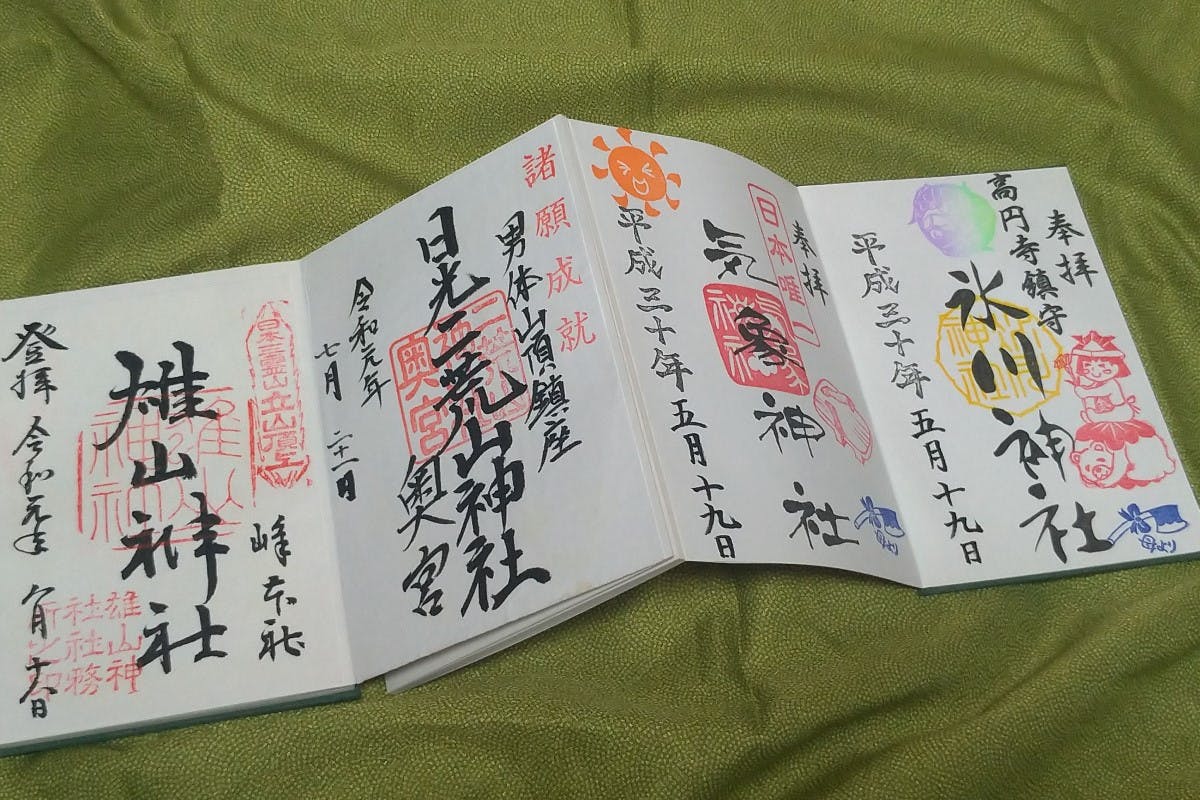 奉拝
高円寺鎮守
氷川神社
平成三十年五月十九日
母より
奉拝
日本唯一
気象神社
平成三十年五月十九日
母より
諸願成就
男体山頂鎮座
日光二荒山神社
奥宮
奥宮
令和元年
七月二十一日
峰本社
雄山神社
雄山神
社社務
所之印
登拝 令和元年 八月十八日